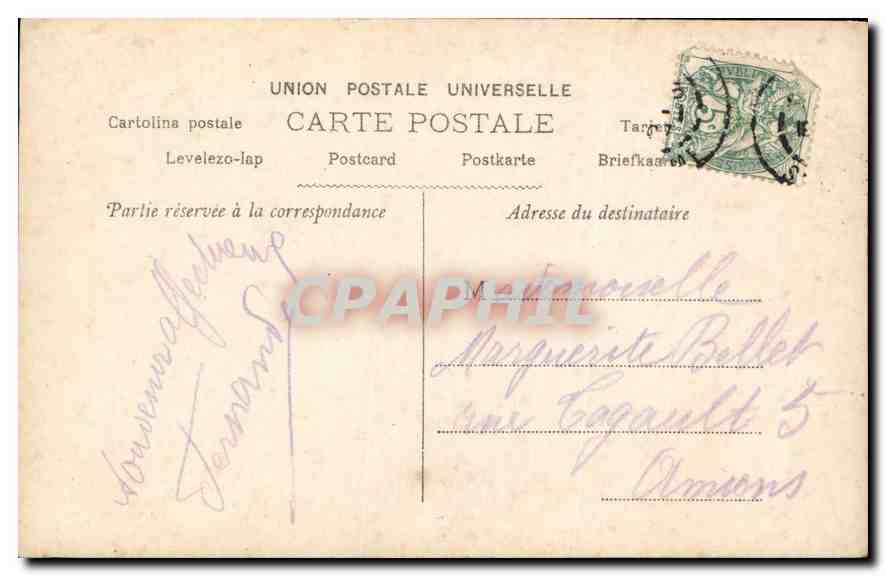 UNION POSTALE UNIVERSELLE
Cartolina postale CARTE POSTALE Tarje
Levelezo-lap Postcard Postkarte Briefkaar
Partie réservée à la correspondance
Adresse du destinataire
Souvenir affectueux
Fernande
CPAPHIL
Mademoiselle
Marguerite Bellet
rue Cogault 5
Amiens